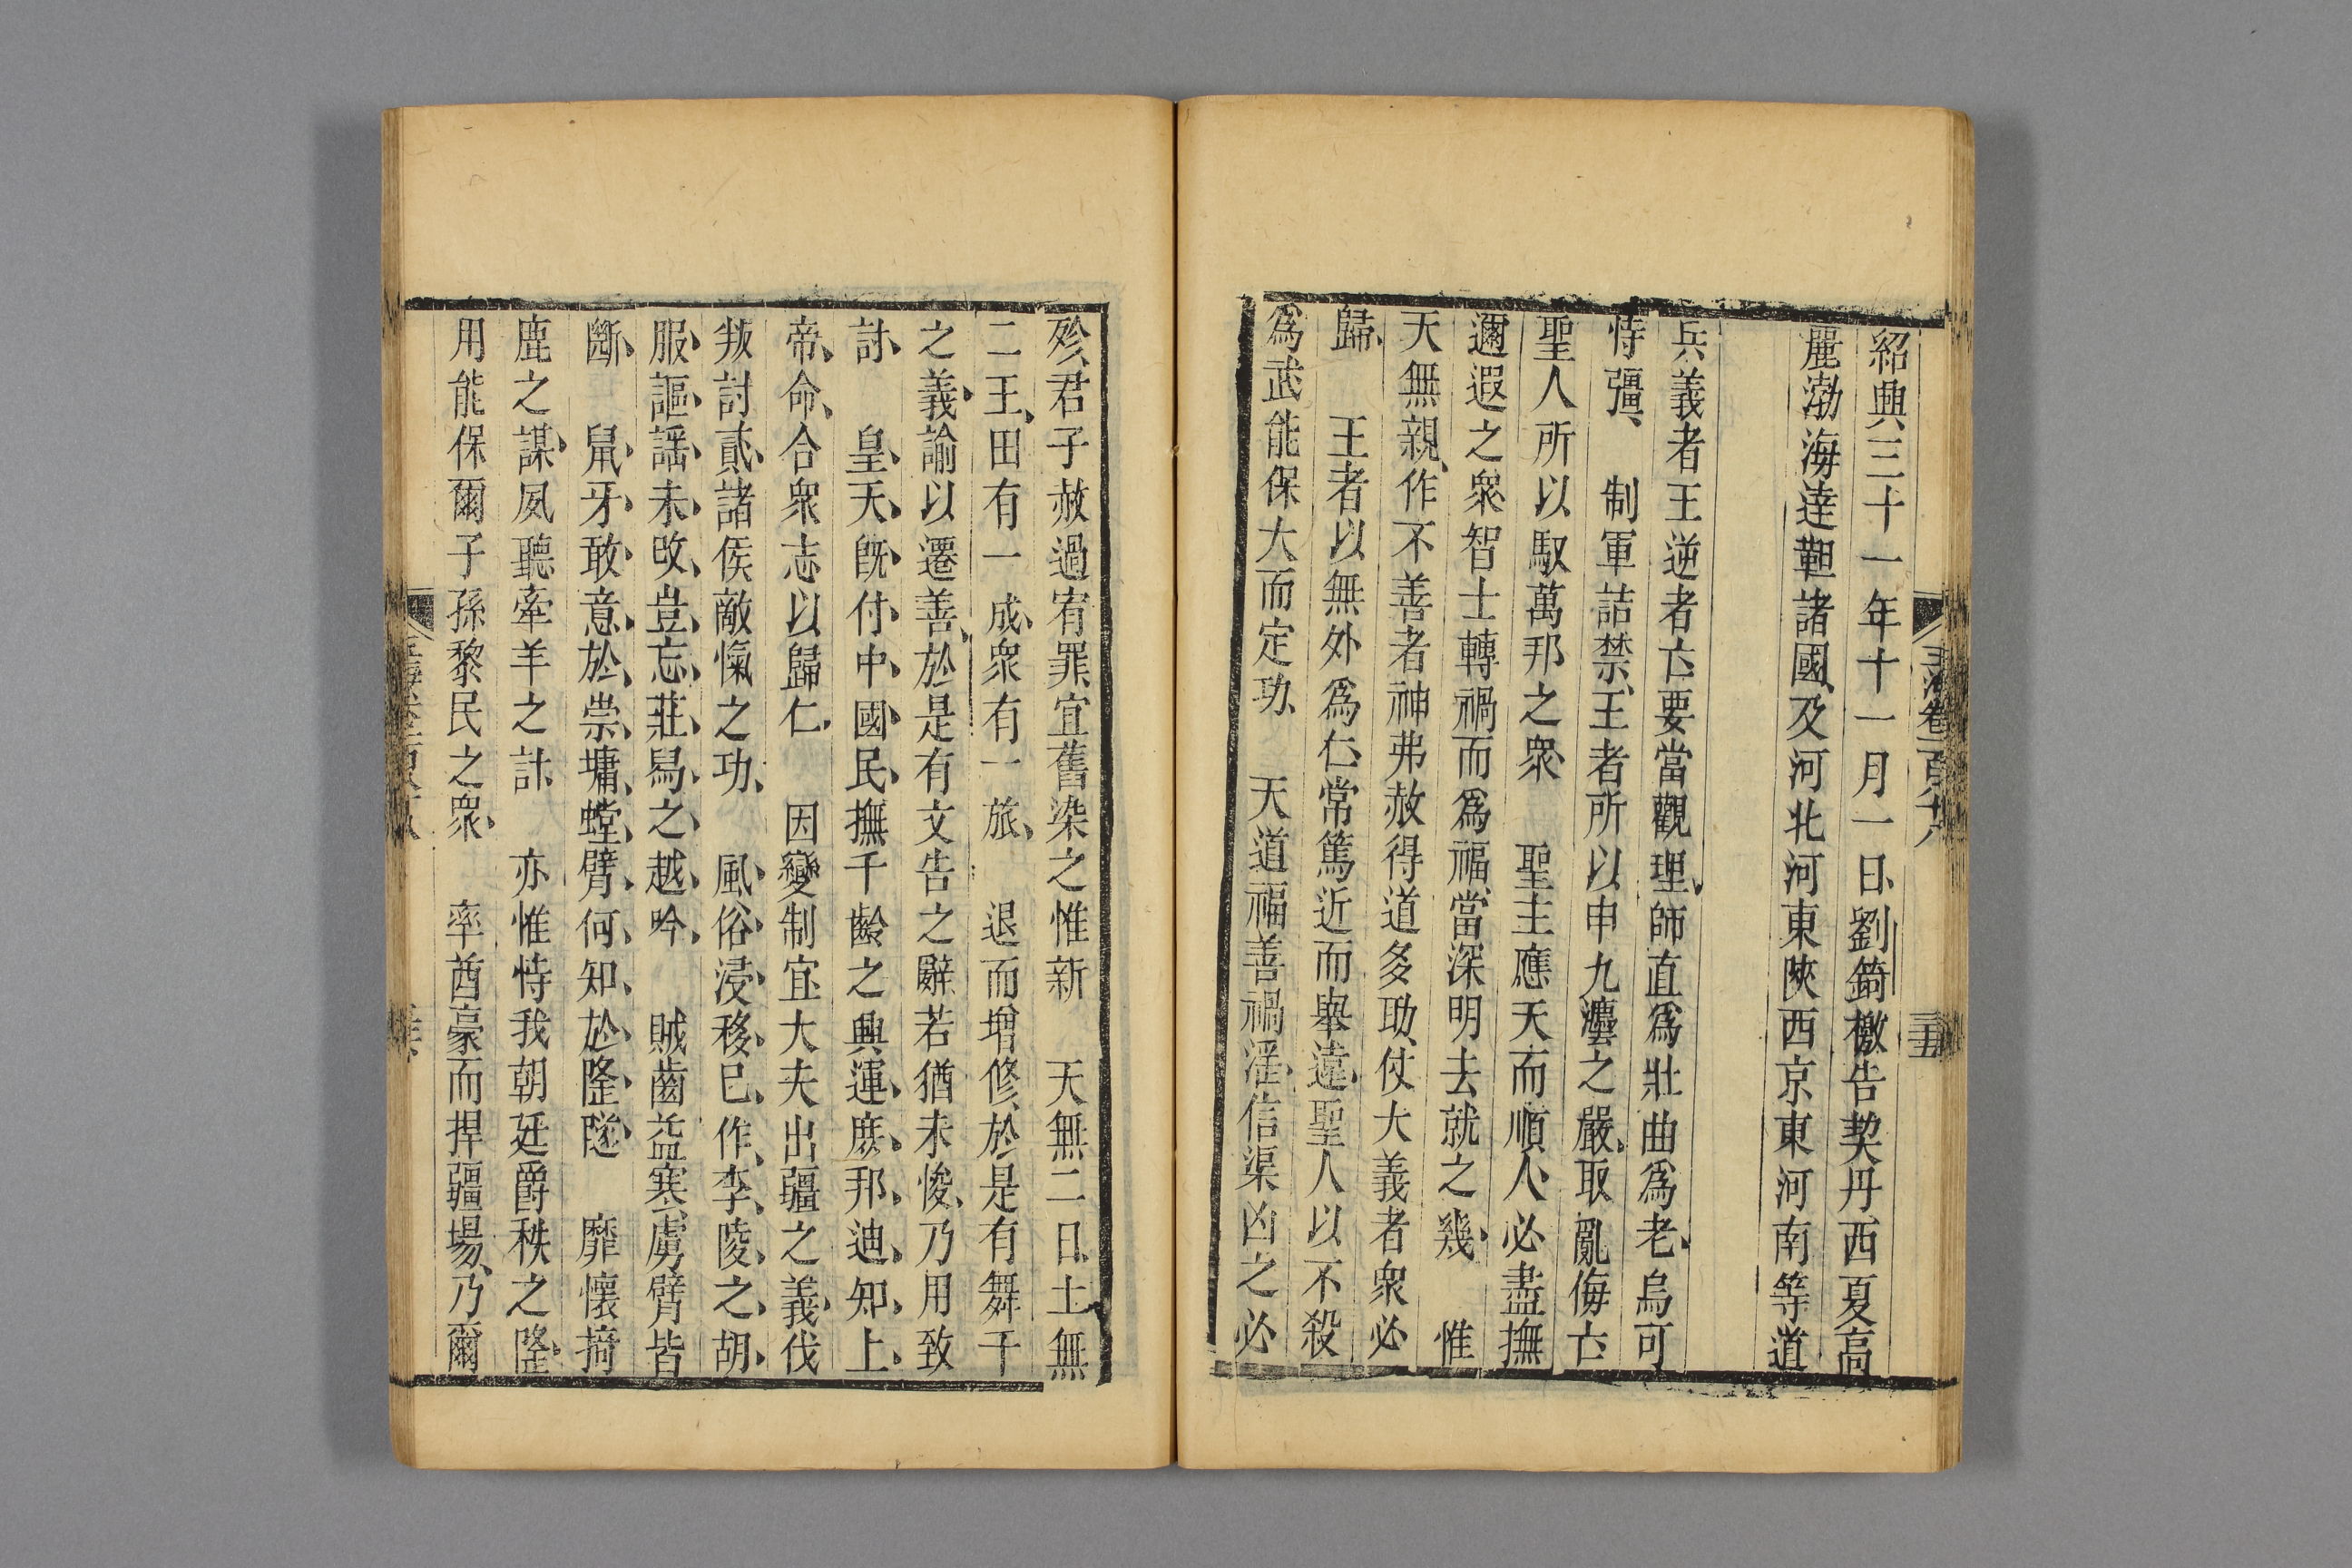 紹興三十一年十一月一日、劉錡檄告契丹西夏高
麗渤海達靼諸國、及河北河東陝西京東河南等道
兵義者王逆者亡要當觀理、師直爲壯曲爲老、烏可
恃彊、　制軍詰禁、王者所以申九灋之嚴、取亂侮亡
聖人所以馭萬邦之衆、　聖主應天而順人、必盡撫
邇遐之衆智士轉禍而爲福、當深明去就之幾、　惟
天無親、作不善者神弗赦得道多助、仗大義者衆必
歸、　王者以無外爲仁、常篤近而舉遠、聖人以不殺
爲武能保大而定功、　天道福善禍淫、信渠凶之必
殄、君子赦過宥罪、宜舊染之惟新　天無二日、土無
二王、田有一成、衆有一旅、　退而增修、於是有舞干
之義、諭以遷善、於是有文告之辭若猶未悛、乃用致
討、　皇、天、旣、付、中、國、民、撫千齡之興運、庶、邦、迪、知、上、
帝、命、合衆志以歸仁、　因變制宜、大夫出疆之義、伐
叛討貳、諸侯敵愾之功、　風、俗、浸、移、已、作、李、陵、之、胡、
服、謳、謡、未、改、豈、忘、莊、舄、之、越、吟、　賊齒益寒、虜臂皆
斷、　鼠、牙、敢、意、於、崇、墉、螳、臂、何、知、於、隆、隧、　靡懷掎
鹿之謀、夙聽牽羊之計　亦惟恃我朝廷爵秩之隆、
用能保爾子孫黎民之衆、　率酋豪而捍疆場、乃爾